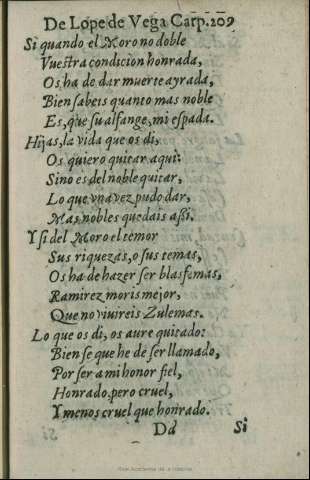 De Lope de Vega Carp. 209
Si quando el Moro no doble
Vuestra condicion honrada,
Os ha de dar muerte ayrada,
Bien sabeis quanto mas noble
Es, que su alfange, mi espada.
Hijas, la vida que os di,
Os quiero quitar aqui:
Sino es del noble quitar,
Lo que vna vez pudo dar,
Mas nobles quedais assi.
Y si del Moro el temor
Sus riquezas, o sus temas,
Os ha de hazer ser blasfemas,
Ramirez moris mejor,
Que no viuireis Zulemas.
Lo que os di, os aure quitado:
Bien se que he de ser llamado,
Por ser a mi honor fiel,
Honrado, pero cruel,
Y menos cruel que honrado.
Dd Si